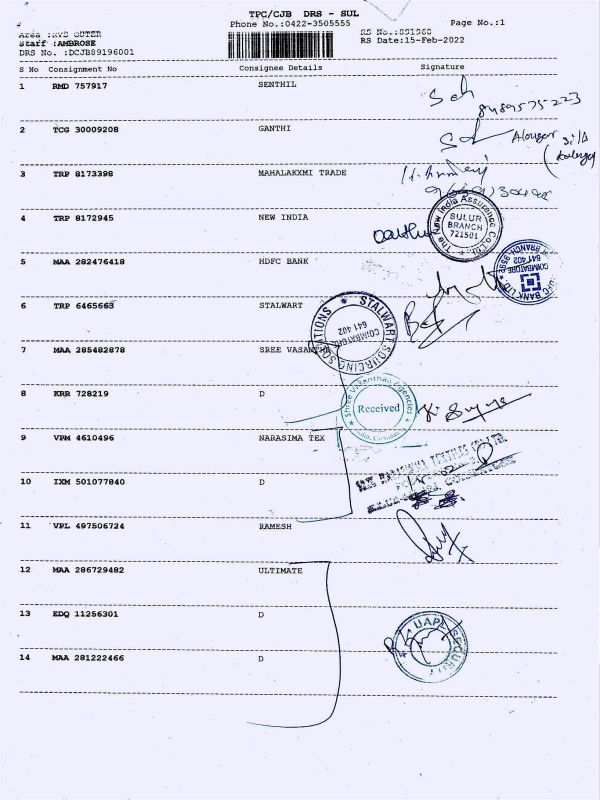 TPC/CJB DRS - SUL
Phone No.:0422-3505555
Page No.:1
Area :RVS OUTER
RS No.:891960
Staff :AMBROSE
RS Date:15-Feb-2022
DRS No. :DCJB89196001
S No Consignment No Consignee Details Signature
1 RMD 757917 SENTHIL
2 TCG 30009208 GANTHI
3 TRP 8173398 MAHALAKXMI TRADE
4 TRP 8172945 NEW INDIA
The New India Assurance Co. Ltd.
SULUR
BRANCH
721501
5 MAA 282476418 HDFC BANK
HDFC BANK LTD
COIMBATORE
641 402
6 TRP 6465663 STALWART
STALWART SOURCING SOLUTIONS
COIMBATORE
641 402
7 MAA 285482878 SREE VASANTHA
8 KRR 728219 D
Shree Vasanthaa Agencies
Received
9 VPM 4610496 NARASIMA TEX
10 IXM 501077840 D
11 VPL 497506724 RAMESH
12 MAA 286729482 ULTIMATE
13 EDQ 11256301 D
UAPL SECURITY
14 MAA 281222466 D